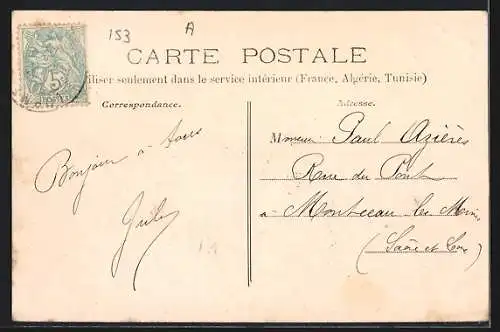 153
A
CARTE POSTALE
iliser seulement dans le service intérieur (France, Algérie, Tunisie)
Correspondance.
Adresse.
Bonjour à tous
Monsieur Paul Azières
Rue du Pont
à Montceau les Mines
(Saône et Loire)
5